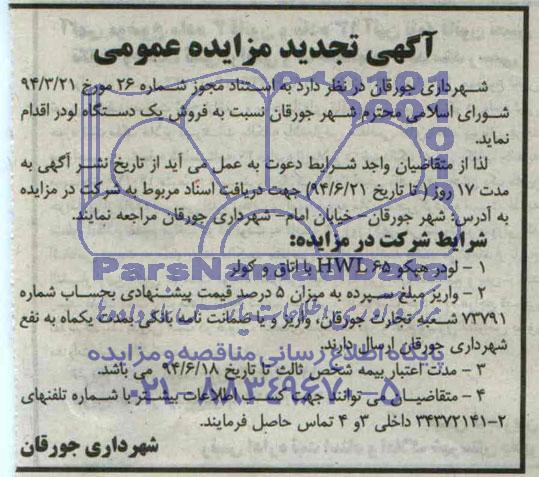 آگهی تجدید مزایده عمومی
شهرداری جورقان در نظر دارد به استناد مجوز شماره ۲۶ مورخ ۹۴/۳/۲۱
شورای اسلامی محترم شهر جورقان نسبت به فروش یک دستگاه لودر اقدام
نماید.
لذا از متقاضیان واجد شرایط دعوت به عمل می آید از تاریخ نشر آگهی به
مدت ۱۷ روز ( تا تاریخ ۹۴/۶/۲۱) جهت دریافت اسناد مربوط به شرکت در مزایده
به آدرس: شهر جورقان- خیابان امام- شهرداری جورقان مراجعه نمایند.
شرایط شرکت در مزایده:
۱ - لودر هپکو ۶۵ HWL با اتاق و کولر
۲ - واریز مبلغ سپرده به میزان ۵ درصد قیمت پیشنهادی بحساب شماره
۷۳۷۹۱ شعبه تجارت جورقان، واریز و یا ضمانت نامه بانکی بمدت یکماه به نفع
شهرداری جورقان ارسال دارند.
۳ - مدت اعتبار بیمه شخص ثالث تا تاریخ ۹۴/۶/۱۸ می باشد.
۴ - متقاضیان می توانند جهت کسب اطلاعات بیشتر با شماره تلفنهای
۲-۳۴۳۷۲۱۴۱ داخلی ۳و ۴ تماس حاصل فرمایند.
شهرداری جورقان
ParsNamadData
پایگاه اطلاع رسانی مناقصه و مزایده
۰۲۱-۸۸۳۴۹۶۷۰-۵